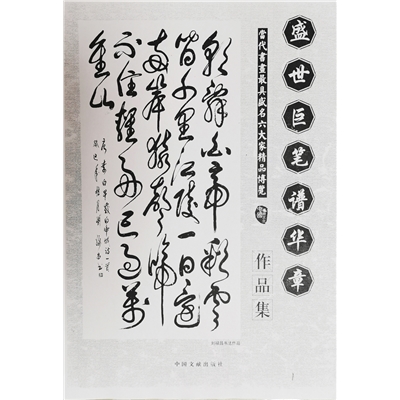 盛世巨笔谱华章
當代書畫最具盛名六大家精品博覽
作品集
朝辭白帝彩雲
间千里江陵一日還
兩岸猿聲啼
不住輕舟已過萬
重山
中国文献出版社